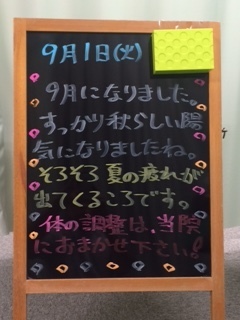 9月1日(火)
9月になりました。
すっかり秋らしい陽
気になりましたね。
そろそろ夏の疲れが
出てくるころです。
体の調整は、当院
におまかせ下さい!